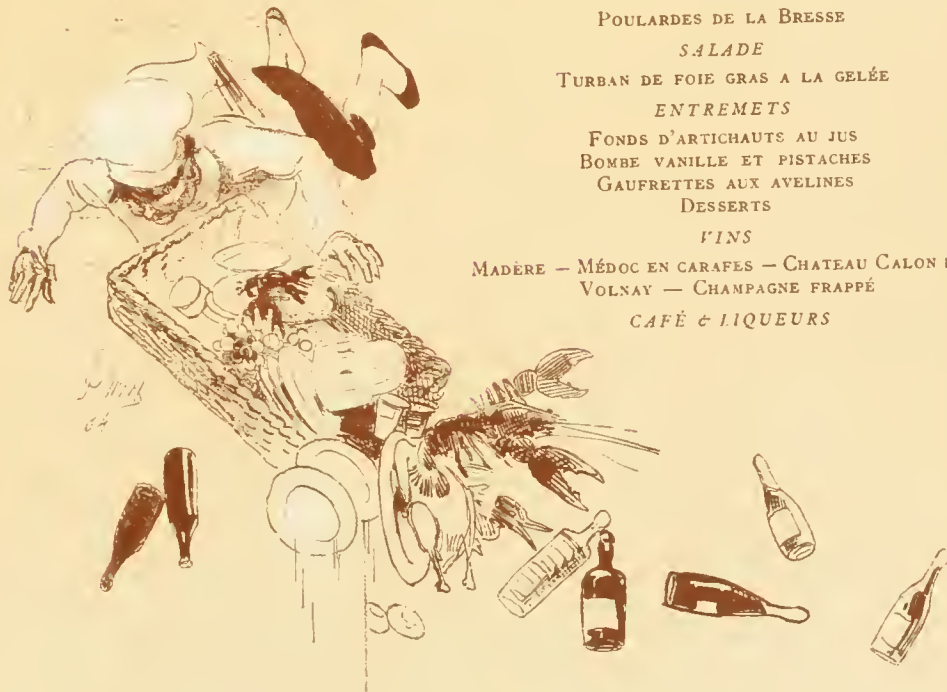 POULARDES DE LA BRESSE
SALADE
TURBAN DE FOIE GRAS A LA GELÉE
ENTREMETS
FONDS D'ARTICHAUTS AU JUS
BOMBE VANILLE ET PISTACHES
GAUFRETTES AUX AVELINES
DESSERTS
VINS
MADÈRE — MÉDOC EN CARAFES — CHATEAU CALON
VOLNAY — CHAMPAGNE FRAPPÉ
CAFÉ & LIQUEURS